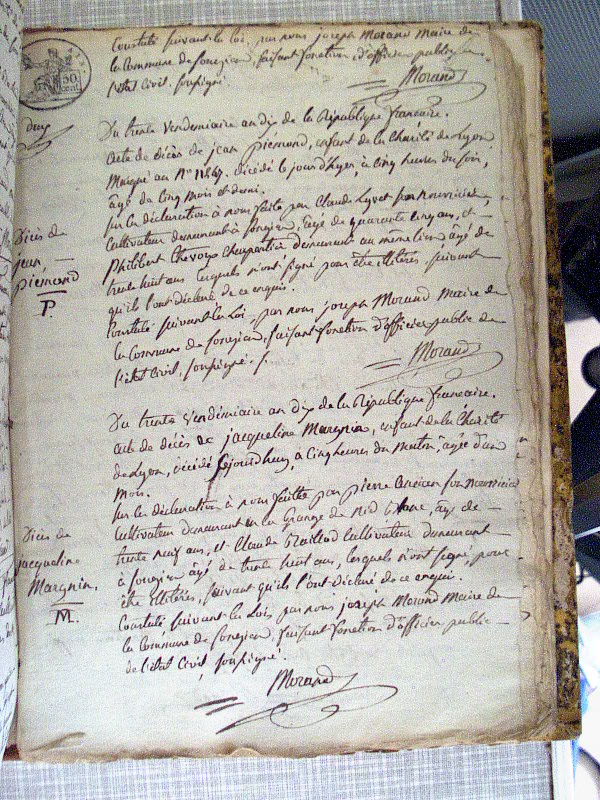 Constaté suivant la loi, par nous joseph Morand Maire de
la Commune de songieu, faisant fonction d'officier public de
l'état Civil, soussigné.
Morand
50
cent
Du trente Vendemiaire an dix de la République francaise.
Acte de décès de jean piémond, enfant de la Charité de Lyon
Marqué au N° décédé le jourd'hyer, à cinq heures du soir,
âgé de cinq mois et demi.
sur la déclaration à nous faite par Claude Lyvet son nourricier,
Cultivateur demeurant à songieu, âgé de quarante cinq ans, et
Philibert Chevroz Charpentier demeurant au même lieu âgé de
trente huit ans lesquels n'ont signé pour être illitérés, suivant
qu'ils l'ont déclaré de ce enquis.
Constaté suivant la Loi, par nous joseph Morand Maire de
la Commune de songieu, faisant fonction d'officier public de
l'état Civil, soussigné.
Morand
Décès de
jean
piémond
P.
Du trente Vendémiaire an dix de la République francaise.
acte de décès de jacqueline Margnin, enfant de la Charité
de Lyon, décédé cejourdhuy, à cinq heures du matin, âgée d'un
mois.
sur la déclaration à nous faitte par pierre son nourricier
Cultivateur demeurant à la Grange de âgé de
trente neuf ans, et Claude Cultivateur demeurant
à songieu âgé de trente huit ans, lesquels n'ont signé, pour
être illitérés, suivant qu'ils l'ont déclaré de ce enquis.
Constaté suivant la Loi, par nous joseph Morand Maire de
la Commune de songieu, faisant fonction d'officier public
de l'état Civil, soussigné.
Morand
Décès de
jacqueline
Margnin.
M.